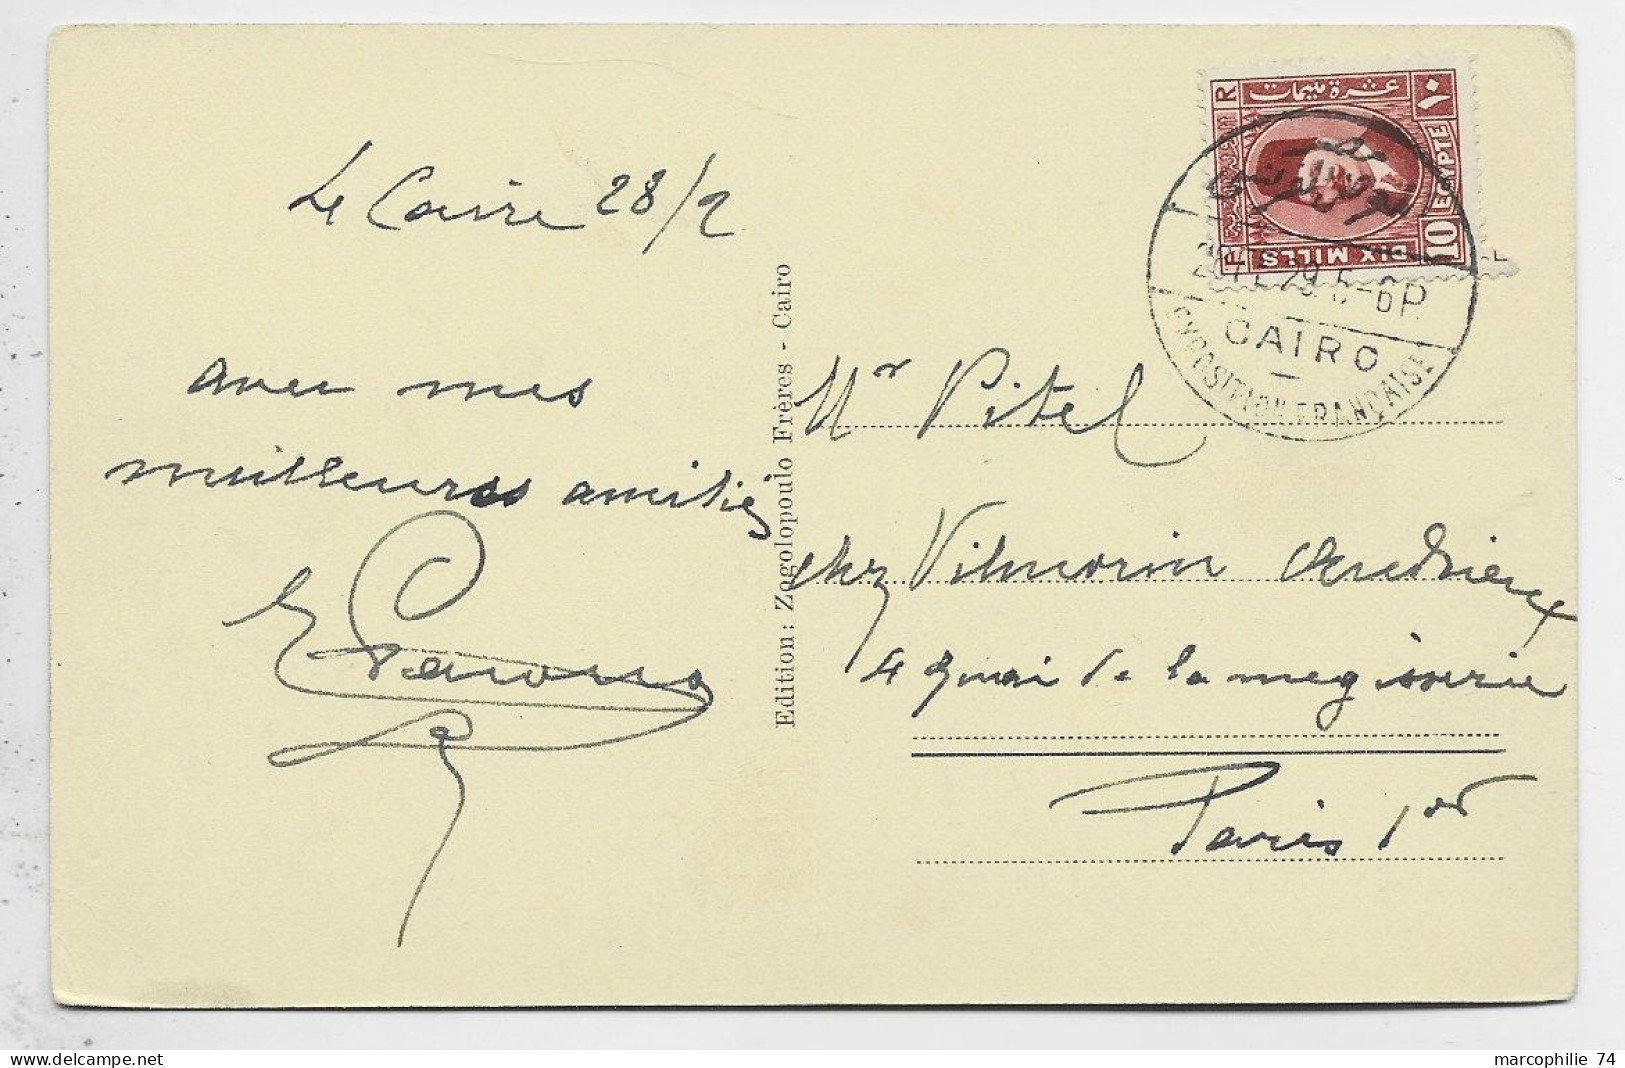 Le Caire 28/2
avec mes
meilleures amitiés
Edition: Zogolopoulo Frères - Cairo
R
عشرة مليمات
١٠
EGYPTE
10
DIX MILLS
29 5-6P
CAIRO
EXPOSITION FRANÇAISE
Mr Pitel
chez Vilmorin Andrieux
4 Quai de la megisserie
Paris 1er
marcophilie 74